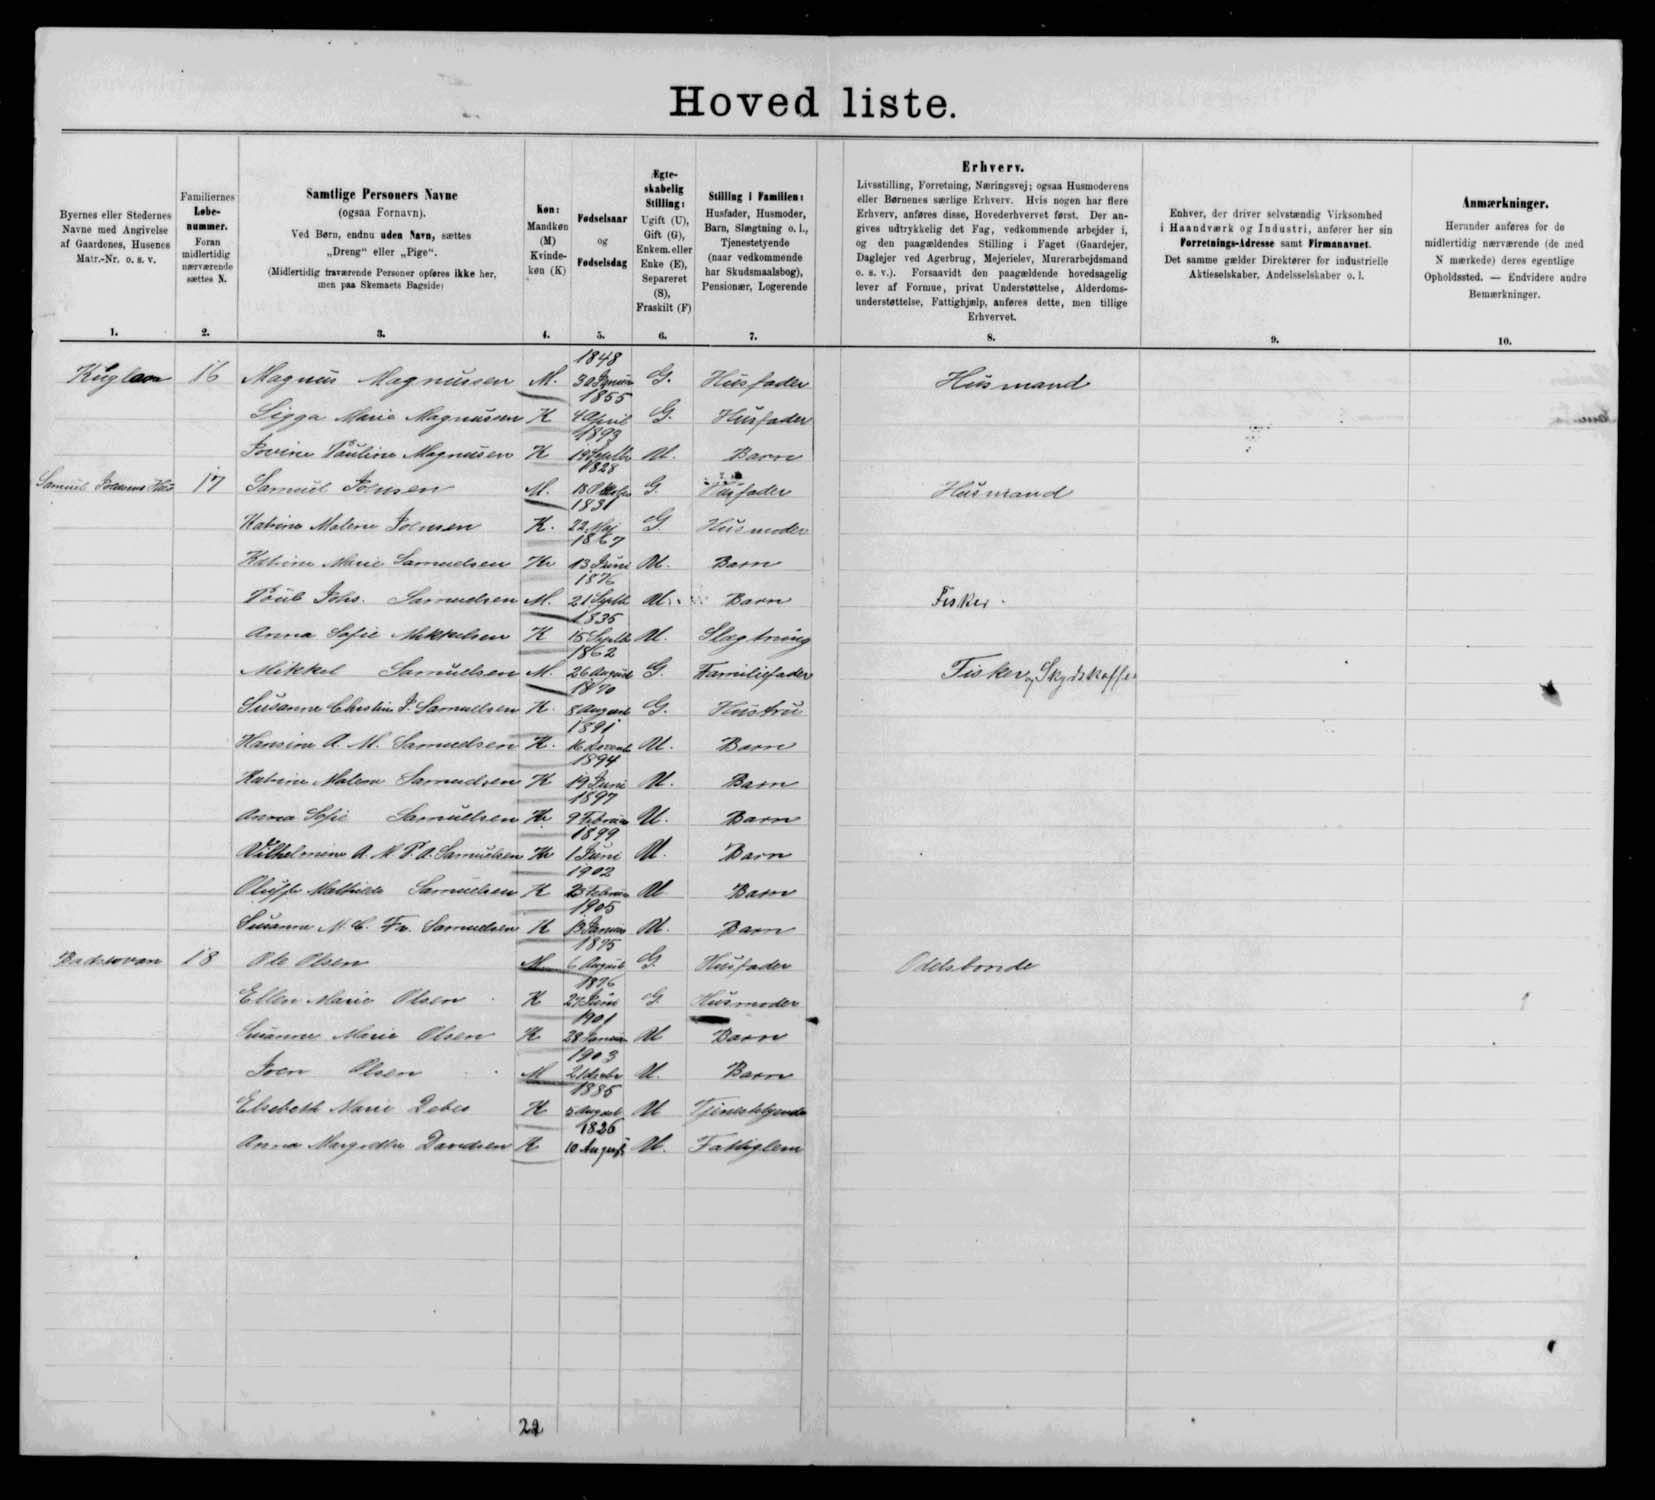 Hoved liste.
Byernes eller Stedernes
Navne med Angivelse
af Gaardenes, Husenes
Matr.-Nr. o. s. v.
1.
Familiernes
Løbe-
nummer.
Foran
midlertidig
nærværende
sættes N.
2.
Samtlige Personers Navne
(ogsaa Fornavn).
Ved Børn, endnu uden Navn, sættes
„Dreng“ eller „Pige“.
(Midlertidig fraværende Personer opføres ikke her,
men paa Skemaets Bagside)
3.
Køn:
Mandkøn
(M)
Kvinde-
køn (K)
4.
Fødselsaar
og
Fødselsdag
5.
Ægte-
skabelig
Stilling:
Ugift (U),
Gift (G),
Enkem. eller
Enke (E),
Separeret
(S),
Fraskilt (F)
6.
Stilling i Familien:
Husfader, Husmoder,
Barn, Slægtning o. l.,
Tjenestetyende
(naar vedkommende
har Skudsmaalsbog),
Pensionær, Logerende
7.
Erhverv.
Livsstilling, Forretning, Næringsvej; ogsaa Husmoderens
eller Børnenes særlige Erhverv. Hvis nogen har flere
Erhverv, anføres disse, Hovederhvervet først. Der an-
gives udtrykkelig det Fag, vedkommende arbejder i,
og den paagældendes Stilling i Faget (Gaardejer,
Daglejer ved Agerbrug, Mejerielev, Murerarbejdsmand
o. s. v.). Forsaavidt den paagældende hovedsagelig
lever af Formue, privat Understøttelse, Alderdoms-
understøttelse, Fattighjælp, anføres dette, men tillige
Erhvervet.
8.
Enhver, der driver selvstændig Virksomhed
i Haandværk og Industri, anfører her sin
Forretnings-Adresse samt Firmanavnet.
Det samme gælder Direktører for industrielle
Aktieselskaber, Andelsselskaber o. l.
9.
Anmærkninger.
Herunder anføres for de
midlertidig nærværende (de med
N mærkede) deres egentlige
Opholdssted. — Endvidere andre
Bemærkninger.
10.
16 Magnus Magnussen M. 1848 30 G. Husfader Husmand
Sigga Marie Magnussen K 1855 4 April G. Husfader
Pauline Magnussen K 1893 19 Septbr U. Barn
Samuel Hus 17 Samuel M. 1828 G. Husfader Husmand
Katrine Malene K. 1831 22 Maj G. Husmoder
Katrine Marie Samuelsen K 1867 13 Juni U. Barn
Poul Johs. Samuelsen M. 1876 21 Septb U. Barn Fisker.
Anna Sofie Mikkelsen K 1835 15 Septb U. Slægtning
Mikkel Samuelsen M. 1862 26 August G. Familiefader Fisker og Skydskaffer
Susanne Christine J. Samuelsen K. 1870 8 August G. Hustru
Hansine A. M. Samuelsen K. 1891 U. Barn
Katrine Malene Samuelsen K 1894 19 Juni U. Barn
Anna Sofie Samuelsen K 1897 9 Februar U. Barn
Vilhelmine A. M. P. A. Samuelsen K 1899 1 Juni U. Barn
Mathilde Samuelsen K 1902 Februar U Barn
Susanne M. C. Fr. Samuelsen K 1905 13 Januar U. Barn
18 Ole Olsen M 1875 6 August G. Husfader Odelsbonde
Ellen Marie Olsen K 1876 27 Juni G. Husmoder
Susanne Marie Olsen K 1901 28 Januar U Barn
Joen Olsen M 1903 U. Barn
Elsebeth Marie Debes K 1885 5 August U Tjenestetyende
Anna Margrethe Davidsen K 1826 10 August U. Fattiglem
22